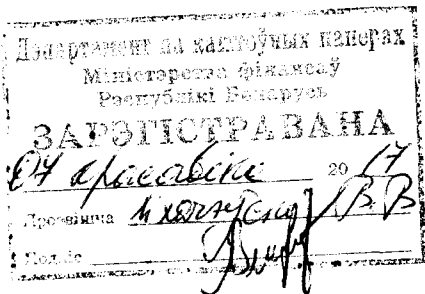 Дэпартамент па каштоўных паперах
Міністэрства фінансаў
Рэспублікі Беларусь
ЗАРЭГІСТРАВАНА
04 красавіка 2017
Прозвішча В. В
Подпіс